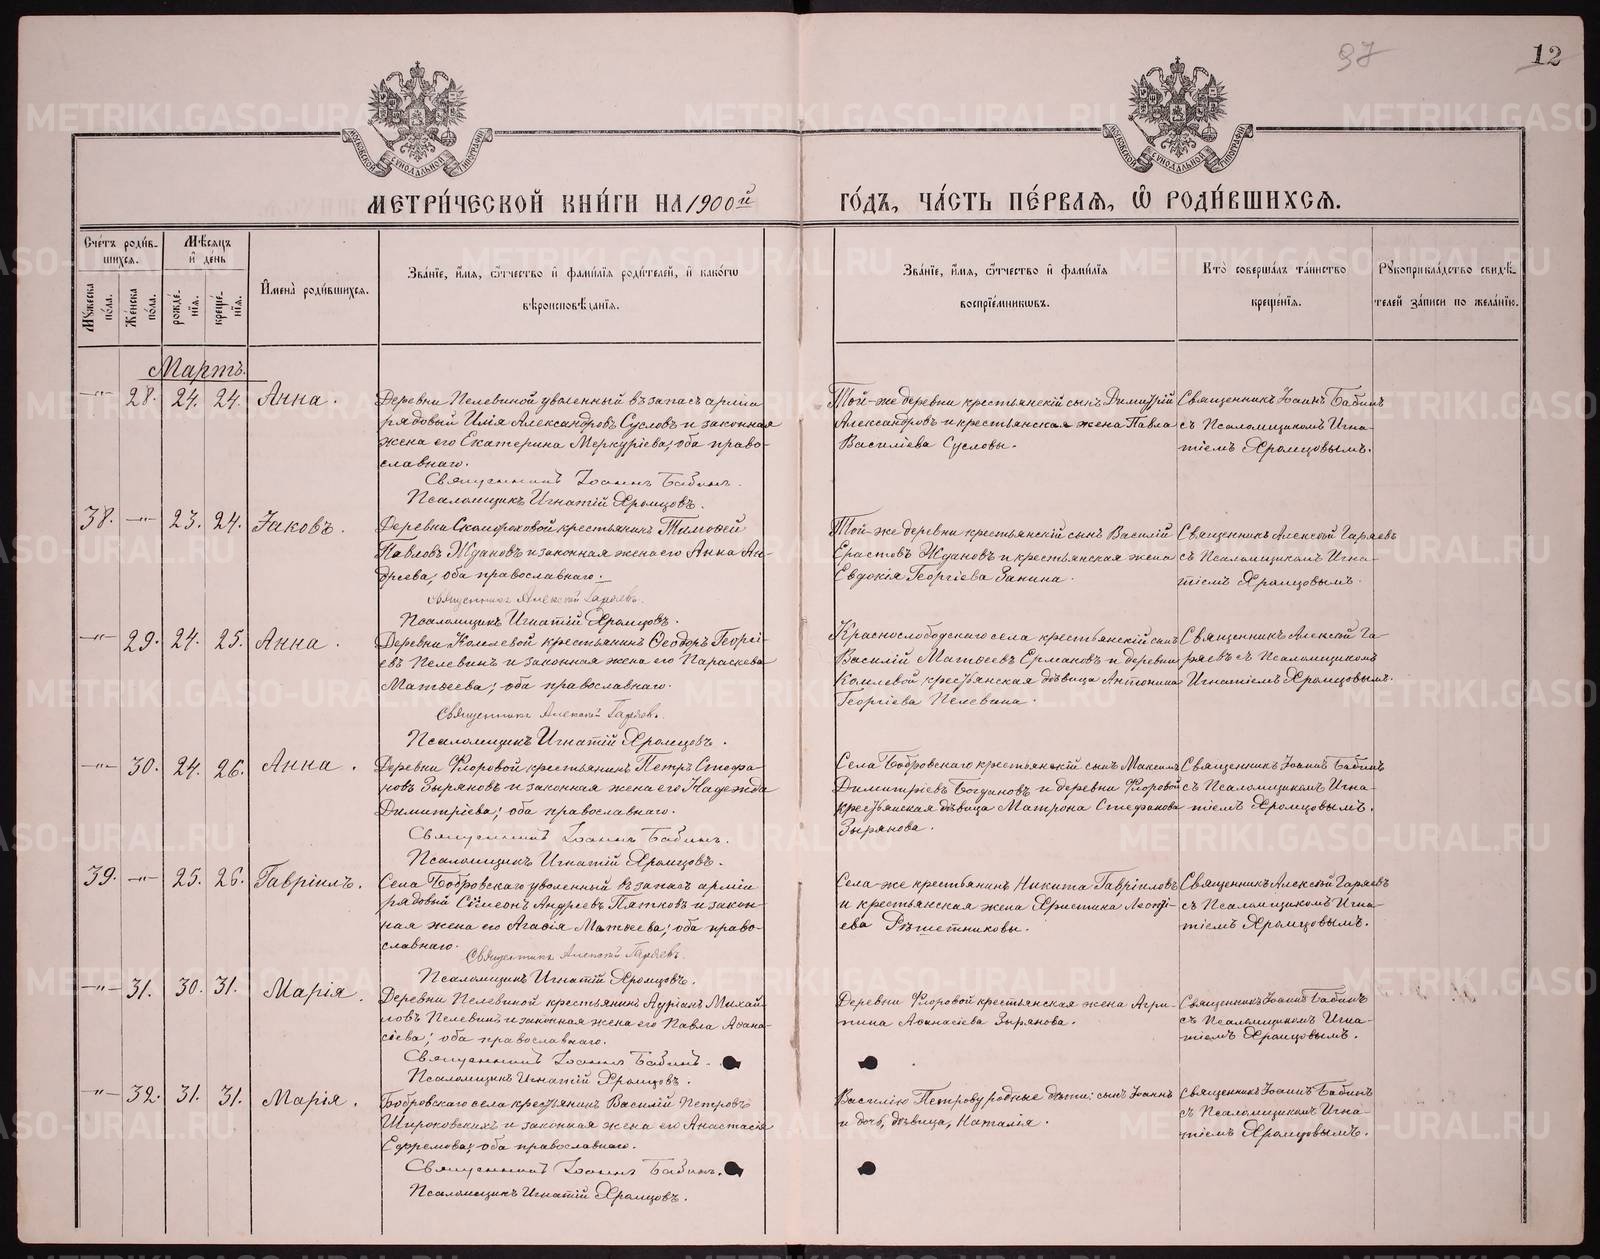 97
12
МОСКОВСКОЙ СѴНОДАЛЬНОЙ ТИПОГРАФІИ
МОСКОВСКОЙ СѴНОДАЛЬНОЙ ТИПОГРАФІИ
МЕТРИ́ЧЕСКОЙ КНИ́ГИ НА 1900й
ГО́ДЪ, ЧА́СТЬ ПЕ́РВАѦ, Ѡ҆ РОДИ́ВШИХСѦ.
Сче́тъ роди́в-
шихсѧ.
Мꙋ́жеска по́ла.
Же́нска по́ла.
Мѣ́сѧцъ
и҆ де́нь
рожде́-
нїѧ.
креще́-
нїѧ.
И҆мена̀ роди́вшихсѧ.
Зва́нїе, и҆́мѧ, ѻ҆́тчество и҆ фами́лїѧ роди́телей, и҆ како́гѡ
вѣроисповѣ́данїѧ.
Зва́нїе, и҆́мѧ, ѻ҆́тчество и҆ фами́лїѧ
воспрїе́мниковъ.
Кто̀ соверша́лъ та́инство
креще́нїѧ.
Рꙋкоприкла́дство свидѣ́-
телей за́писи по жела́нїю.
Мартъ.
-"- 28. 24. 24. Анна.
Деревни Пелевиной уволенный въ запасъ арміи
рядовый Илія Александровъ Сусловъ и законная
жена его Екатерина Меркуріева; оба право-
славнаго.
Священникъ Іоаннъ Бабинъ.
Псаломщикъ Игнатій Хромцовъ.
Той-же деревни крестьянскій сынъ Димитрій
Александровъ и крестьянская жена Павла
Василіева Сусловы.
Священникъ Іоаннъ Бабинъ
съ Псаломщикомъ Игна-
тіемъ Хромцовымъ.
38. -"- 23. 24. Іаковъ.
Деревни Скомороховой крестьянинъ Тимоѳей
Павловъ Ждановъ и законная жена его Анна Ан-
дреева; оба православнаго.
Священникъ Алексій Гаряевъ.
Псаломщикъ Игнатій Хромцовъ.
Той-же деревни крестьянскій сынъ Василій
Ерастовъ Ждановъ и крестьянская жена
Евдокія Георгіева Занина.
Священникъ Алексій Гаряевъ
съ Псаломщикомъ Игна-
тіемъ Хромцовымъ.
-"- 29. 24. 25. Анна.
Деревни Комлевой крестьянинъ Ѳеодоръ Георгі-
евъ Пелевинъ и законная жена его Параскева
Матѳеева; оба православнаго.
Священникъ Алексій Гаряевъ.
Псаломщикъ Игнатій Хромцовъ.
Краснослободскаго села крестьянскій сынъ
Василій Матѳеевъ Ермаковъ и деревни
Комлевой крестьянская дѣвица Антонина
Георгіева Пелевина.
Священникъ Алексій Га-
ряевъ съ Псаломщикомъ
Игнатіемъ Хромцовымъ.
-"- 30. 24. 26. Анна.
Деревни Флоровой крестьянинъ Петръ Стефа-
новъ Зыряновъ и законная жена его Надежда
Димитріева; оба православнаго.
Священникъ Іоаннъ Бабинъ.
Псаломщикъ Игнатій Хромцовъ.
Села Бобровскаго крестьянскій сынъ Максимъ
Димитріевъ Богдановъ и деревни Флоровой
крестьянская дѣвица Матрона Стефанова
Зырянова.
Священникъ Іоаннъ Бабинъ
съ Псаломщикомъ Игна-
тіемъ Хромцовымъ.
39. -"- 25. 26. Гавріилъ.
Села Бобровскаго уволенный въ запасъ арміи
рядовый Сѵмеонъ Андреевъ Пятковъ и закон-
ная жена его Агаѳія Матѳеева; оба право-
славнаго.
Священникъ Алексій Гаряевъ.
Псаломщикъ Игнатій Хромцовъ.
Села-же крестьянинъ Никита Гавріиловъ
и крестьянская жена Христина Леонті-
ева Рѣшетниковы.
Священникъ Алексій Гаряевъ
съ Псаломщикомъ Игна-
тіемъ Хромцовымъ.
-"- 31. 30. 31. Марія.
Деревни Пелевиной крестьянинъ Адріанъ Михай-
ловъ Пелевинъ и законная жена его Павла Аѳана-
сіева; оба православнаго.
Священникъ Іоаннъ Бабинъ.
Псаломщикъ Игнатій Хромцовъ.
Деревни Флоровой крестьянская жена Агрип-
пина Аѳанасіева Зырянова.
Священникъ Іоаннъ Бабинъ
съ Псаломщикомъ Игна-
тіемъ Хромцовымъ.
-"- 32. 31. 31. Марія.
Бобровскаго села крестьянинъ Василій Петровъ
Широковскихъ и законная жена его Анастасія
Ефремова; оба православнаго.
Священникъ Іоаннъ Бабинъ.
Псаломщикъ Игнатій Хромцовъ.
Василію Петрову родные дѣти: сынъ Іоаннъ
и дочь, дѣвица, Наталія.
Священникъ Іоаннъ Бабинъ
съ Псаломщикомъ Игна-
тіемъ Хромцовымъ.
METRIKI.GASO-URAL.RU